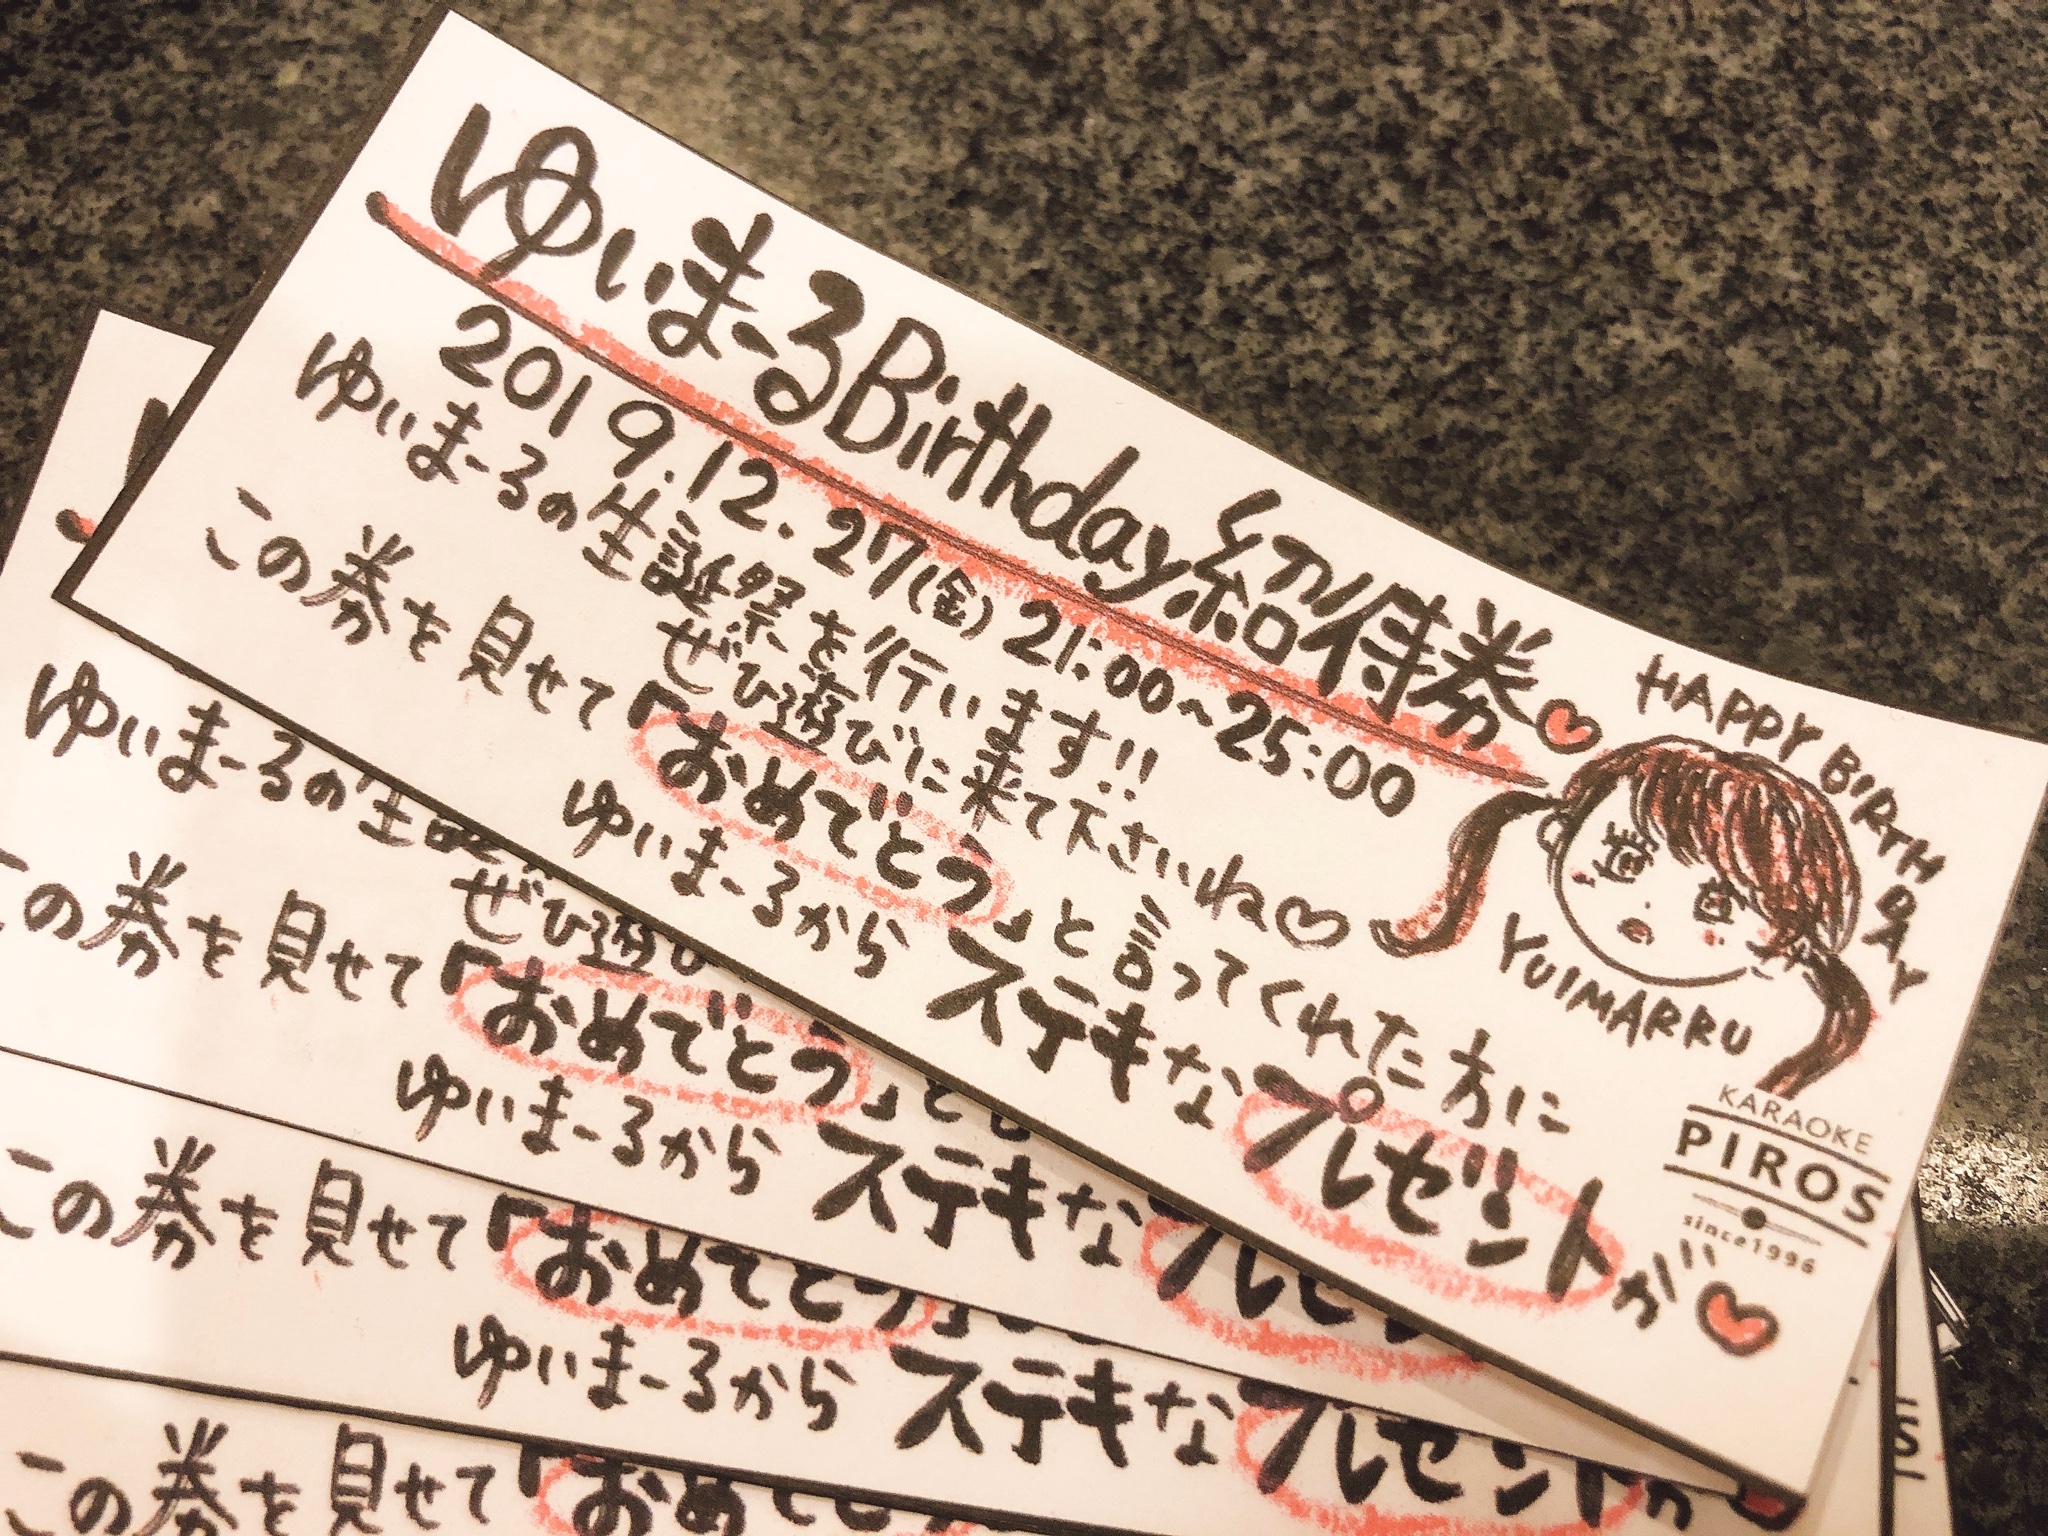 ゆいまーるBirthday紹待券
2019.12.27(金)21:00~25:00
ゆいまーるの生誕祭を行います!!
ぜひ遊びに来て下さいね♡
この券を見せて「おめでとう」と言ってくれた方に
ゆいまーるからステキなプレゼントが♡
HAPPY BIRTHDAY
YUIMARRU
KARAOKE
PIROS
since1996
ゆいまーるの生誕
ぜひ遊び
この券を見せて「おめでとう」と
ゆいまーるからステキなプレゼン
この券を見せて「おめでとう」
ゆいまーるからステキなプレゼントが
この券を見せて「おめでとう